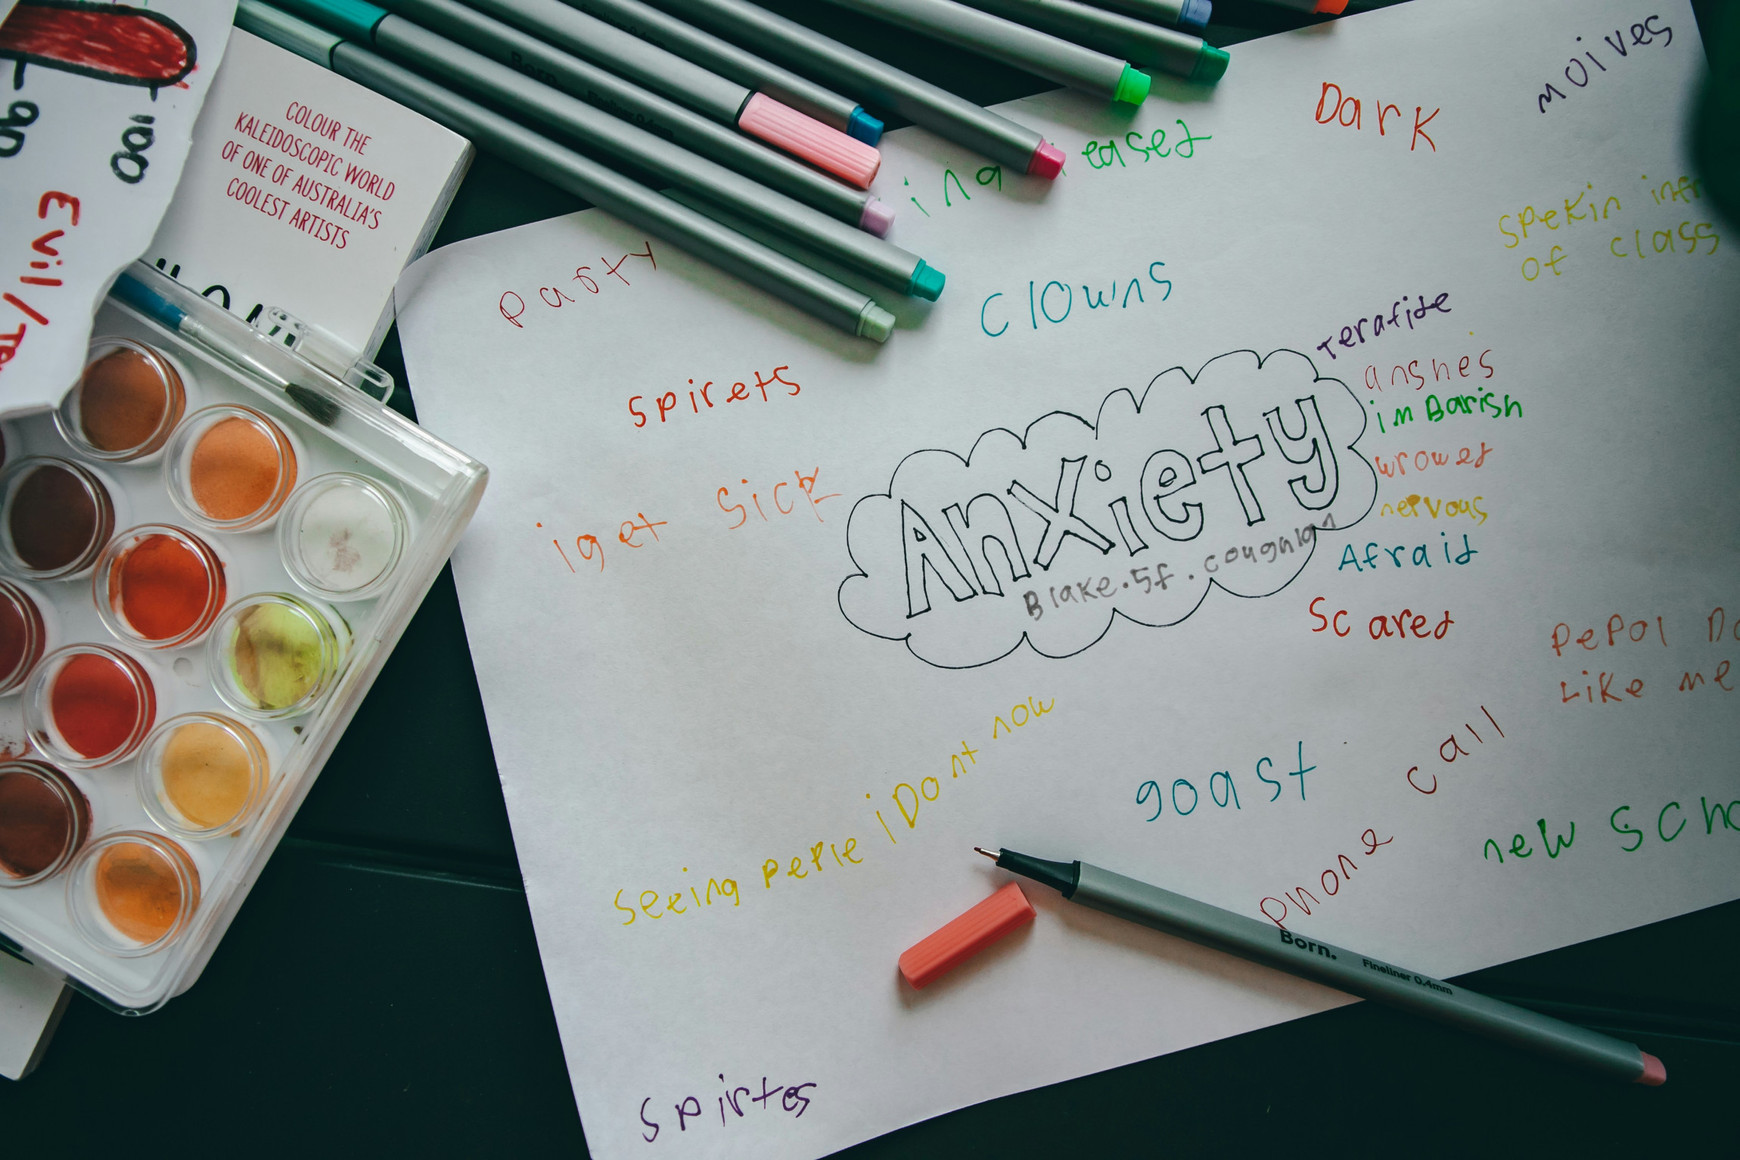 COLOUR THE
KALEIDOSCOPIC WORLD
OF ONE OF AUSTRALIA'S
COOLEST ARTISTS
Evil/
100
Born.
moives
DArK
easet
spekin
of class
party
clowns
spirets
iget sick
Anxiety
Blake.5f.coughlan
Terafide
anshes
imBarish
wrowet
nervous
Afraid
Scared
pepol
Like me
seeing peple iDont now
goast
phone call
new
spirtes
Born. Fineliner 0.4mm